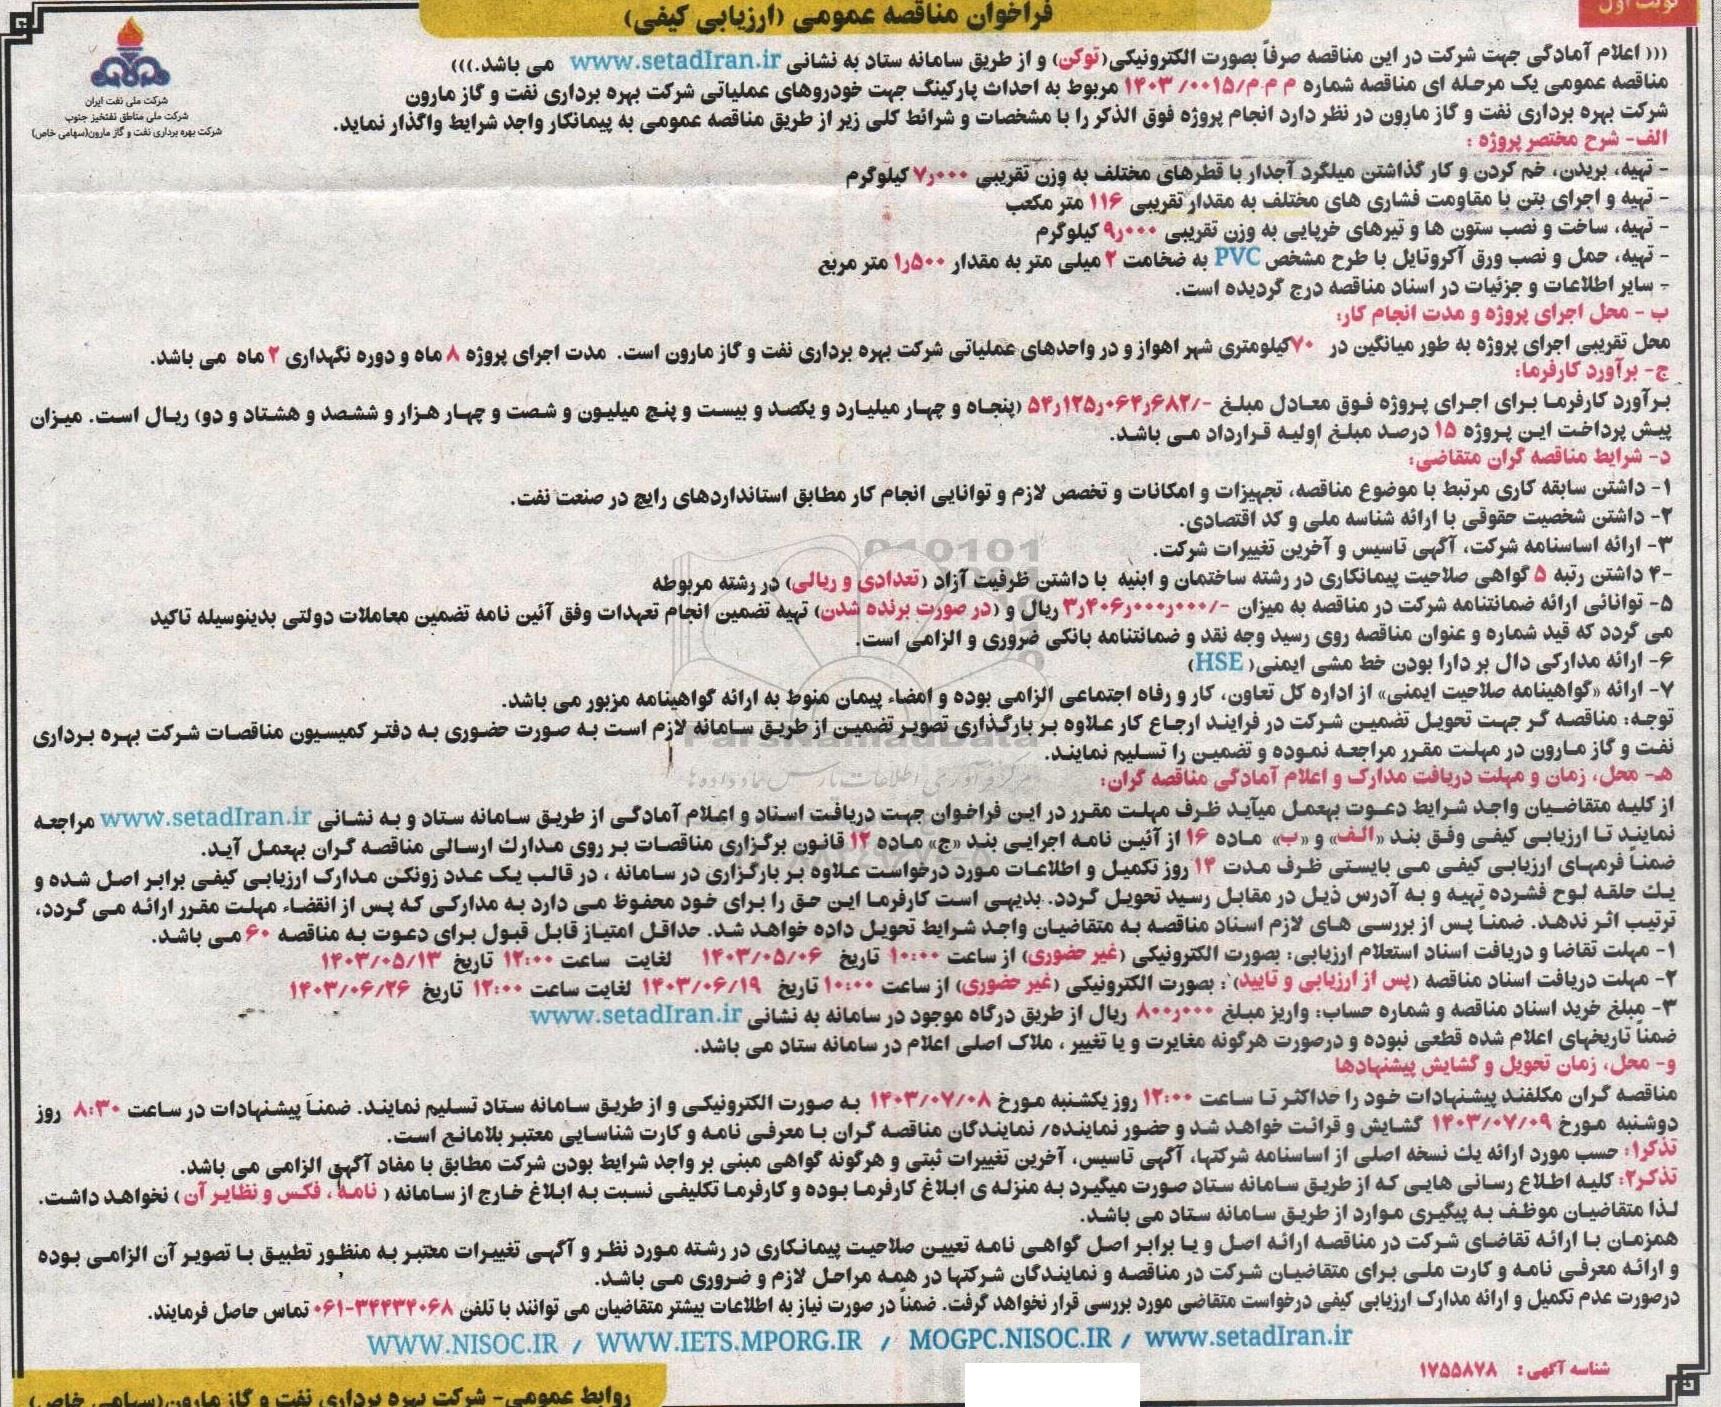 نوبت اول
فراخوان مناقصه عمومی (ارزیابی کیفی)
شرکت ملی نفت ایران
شرکت ملی مناطق نفتخیز جنوب
شرکت بهره برداری نفت و گاز مارون(سهامی خاص)
((( اعلام آمادگی جهت شرکت در این مناقصه صرفاً بصورت الکترونیکی(توکن) و از طریق سامانه ستاد به نشانی www.setadIran.ir می باشد.)))
مناقصه عمومی یک مرحله ای مناقصه شماره م م م/۰۰۱۵/ ۱۴۰۳ مربوط به احداث پارکینگ جهت خودروهای عملیاتی شرکت بهره برداری نفت و گاز مارون
شرکت بهره برداری نفت و گاز مارون در نظر دارد انجام پروژه فوق الذکر را با مشخصات و شرائط کلی زیر از طریق مناقصه عمومی به پیمانکار واجد شرایط واگذار نماید.
الف- شرح مختصر پروژه :
- تهیه، بریدن، خم کردن و کار گذاشتن میلگرد آجدار با قطرهای مختلف به وزن تقریبی ۷٫۰۰۰ کیلوگرم
- تهیه و اجرای بتن با مقاومت فشاری های مختلف به مقدار تقریبی ۱۱۶ متر مکعب
- تهیه، ساخت و نصب ستون ها و تیرهای خرپایی به وزن تقریبی ۹٫۰۰۰ کیلوگرم
- تهیه، حمل و نصب ورق آکروتایل با طرح مشخص PVC به ضخامت ۲ میلی متر به مقدار ۱٫۵۰۰ متر مربع
- سایر اطلاعات و جزئیات در اسناد مناقصه درج گردیده است.
ب - محل اجرای پروژه و مدت انجام کار:
محل تقریبی اجرای پروژه به طور میانگین در ۷۰کیلومتری شهر اهواز و در واحدهای عملیاتی شرکت بهره برداری نفت و گاز مارون است. مدت اجرای پروژه ۸ ماه و دوره نگهداری ۲ ماه می باشد.
ج- برآورد کارفرما:
برآورد کارفرما برای اجرای پروژه فوق معادل مبلغ -/۵۴٫۱۲۵٫۰۶۴٫۶۸۲ (پنجاه و چهار میلیارد و یکصد و بیست و پنج میلیون و شصت و چهار هزار و ششصد و هشتاد و دو) ریال است. میزان
پیش پرداخت این پروژه ۱۵ درصد مبلغ اولیه قرارداد می باشد.
د- شرایط مناقصه گران متقاضی:
۱- داشتن سابقه کاری مرتبط با موضوع مناقصه، تجهیزات و امکانات و تخصص لازم و توانایی انجام کار مطابق استانداردهای رایج در صنعت نفت.
۲- داشتن شخصیت حقوقی با ارائه شناسه ملی و کد اقتصادی.
۳- ارائه اساسنامه شرکت، آگهی تاسیس و آخرین تغییرات شرکت.
-۴ داشتن رتبه ۵ گواهی صلاحیت پیمانکاری در رشته ساختمان و ابنیه با داشتن ظرفیت آزاد (تعدادی و ریالی) در رشته مربوطه
۵- توانائی ارائه ضمانتنامه شرکت در مناقصه به میزان -/۳٫۴۰۶٫۰۰۰٫۰۰۰ ریال و (در صورت برنده شدن) تهیه تضمین انجام تعهدات وفق آئین نامه تضمین معاملات دولتی بدینوسیله تاکید
می گردد که قید شماره و عنوان مناقصه روی رسید وجه نقد و ضمانتنامه بانکی ضروری و الزامی است.
۶- ارائه مدارکی دال بر دارا بودن خط مشی ایمنی( HSE)
۷- ارائه «گواهینامه صلاحیت ایمنی» از اداره کل تعاون، کار و رفاه اجتماعی الزامی بوده و امضاء پیمان منوط به ارائه گواهینامه مزبور می باشد.
توجه: مناقصه گر جهت تحویل تضمین شرکت در فرایند ارجاع کار علاوه بر بارگذاری تصویر تضمین از طریق سامانه لازم است به صورت حضوری به دفتر کمیسیون مناقصات شرکت بهره برداری
نفت و گاز مارون در مهلت مقرر مراجعه نموده و تضمین را تسلیم نمایند.
هـ- محل، زمان و مهلت دریافت مدارک و اعلام آمادگی مناقصه گران:
از کلیه متقاضیان واجد شرایط دعوت بهعمل میآید ظرف مهلت مقرر در این فراخوان جهت دریافت اسناد و اعلام آمادگی از طریق سامانه ستاد و به نشانی www.setadIran.ir مراجعه
نمایند تا ارزیابی کیفی وفق بند «الف» و «ب» ماده ۱۶ از آئین نامه اجرایی بند «ج» ماده ۱۲ قانون برگزاری مناقصات بر روی مدارک ارسالی مناقصه گران بهعمل آید.
ضمناً فرمهای ارزیابی کیفی می بایستی ظرف مدت ۱۴ روز تکمیل و اطلاعات مورد درخواست علاوه بر بارگزاری در سامانه ، در قالب یک عدد زونکن مدارک ارزیابی کیفی برابر اصل شده و
یك حلقه لوح فشرده تهیه و به آدرس ذیل در مقابل رسید تحویل گردد. بدیهی است کارفرما این حق را برای خود محفوظ می دارد به مدارکی که پس از انقضاء مهلت مقرر ارائه می گردد،
ترتیب اثر ندهد. ضمناً پس از بررسی های لازم اسناد مناقصه به متقاضیان واجد شرایط تحویل داده خواهد شد. حداقل امتیاز قابل قبول برای دعوت به مناقصه ۶۰ می باشد.
۱- مهلت تقاضا و دریافت اسناد استعلام ارزیابی: بصورت الکترونیکی (غیر حضوری) از ساعت ۱۰:۰۰ تاریخ ۱۴۰۳/۰۵/۰۶ لغایت ساعت ۱۲:۰۰ تاریخ ۱۴۰۳/۰۵/۱۳
۲- مهلت دریافت اسناد مناقصه (پس از ارزیابی و تایید) : بصورت الکترونیکی (غیر حضوری) از ساعت ۱۰:۰۰ تاریخ ۱۴۰۳/۰۶/۱۹ لغایت ساعت ۱۲:۰۰ تاریخ ۱۴۰۳/۰۶/۲۶
۳- مبلغ خرید اسناد مناقصه و شماره حساب: واریز مبلغ ۸۰۰٫۰۰۰ ریال از طریق درگاه موجود در سامانه به نشانی www.setadIran.ir
ضمناً تاریخهای اعلام شده قطعی نبوده و درصورت هرگونه مغایرت و یا تغییر ، ملاک اصلی اعلام در سامانه ستاد می باشد.
و- محل، زمان تحویل و گشایش پیشنهادها
مناقصه گران مکلفند پیشنهادات خود را حداکثر تا ساعت ۱۲:۰۰ روز یکشنبه مورخ ۱۴۰۳/۰۷/۰۸ به صورت الکترونیکی و از طریق سامانه ستاد تسلیم نمایند. ضمناً پیشنهادات در ساعت ۸:۳۰ روز
دوشنبه مورخ ۱۴۰۳/۰۷/۰۹ گشایش و قرائت خواهد شد و حضور نماینده/ نمایندگان مناقصه گران با معرفی نامه و کارت شناسایی معتبر بلامانع است.
تذکر۱: حسب مورد ارائه یك نسخه اصلی از اساسنامه شرکتها، آگهی تاسیس، آخرین تغییرات ثبتی و هرگونه گواهی مبنی بر واجد شرایط بودن شرکت مطابق با مفاد آگهی الزامی می باشد.
تذکر۲: کلیه اطلاع رسانی هایی که از طریق سامانه ستاد صورت میگیرد به منزله ی ابلاغ کارفرما بوده و کارفرما تکلیفی نسبت به ابلاغ خارج از سامانه ( نامه ، فکس و نظایر آن ) نخواهد داشت.
لذا متقاضیان موظف به پیگیری موارد از طریق سامانه ستاد می باشد.
همزمان با ارائه تقاضای شرکت در مناقصه ارائه اصل و یا برابر اصل گواهی نامه تعیین صلاحیت پیمانکاری در رشته مورد نظر و آگهی تغییرات معتبر به منظور تطبیق با تصویر آن الزامی بوده
و ارائه معرفی نامه و کارت ملی برای متقاضیان شرکت در مناقصه و نمایندگان شرکتها در همه مراحل لازم و ضروری می باشد.
درصورت عدم تکمیل و ارائه مدارک ارزیابی کیفی درخواست متقاضی مورد بررسی قرار نخواهد گرفت. ضمناً در صورت نیاز به اطلاعات بیشتر متقاضیان می توانند با تلفن ۳۴۴۳۴۰۶۸-۰۶۱ تماس حاصل فرمایند.
WWW.NISOC.IR / WWW.IETS.MPORG.IR / MOGPC.NISOC.IR / www.setadIran.ir
شناسه آگهی : ۱۷۵۵۸۷۸
روابط عمومی- شرکت بهره برداری نفت و گاز مارون(سهامی خاص)